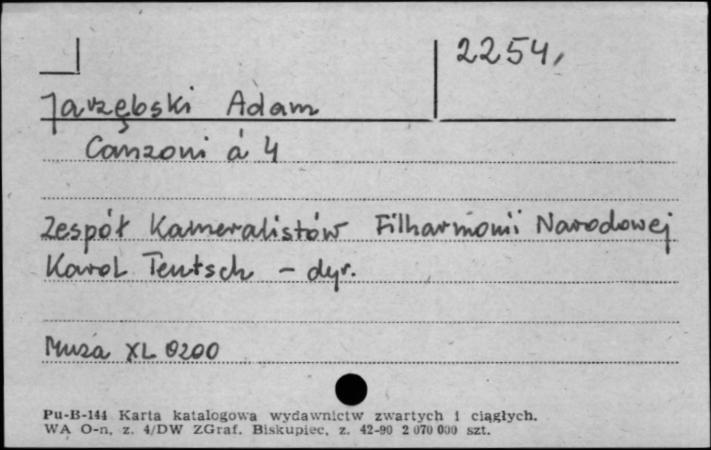 2254,
Jarzębski Adam
Canzoni à 4
Zespół Kameralistów Filharmonii Narodowej
Karol Teutsch - dyr.
Muza XL 0200
Pu-B-144 Karta katalogowa wydawnictw zwartych i ciągłych.
WA O-n, z. 4/DW ZGraf. Biskupiec, z. 42-90 2 070 000 szt.